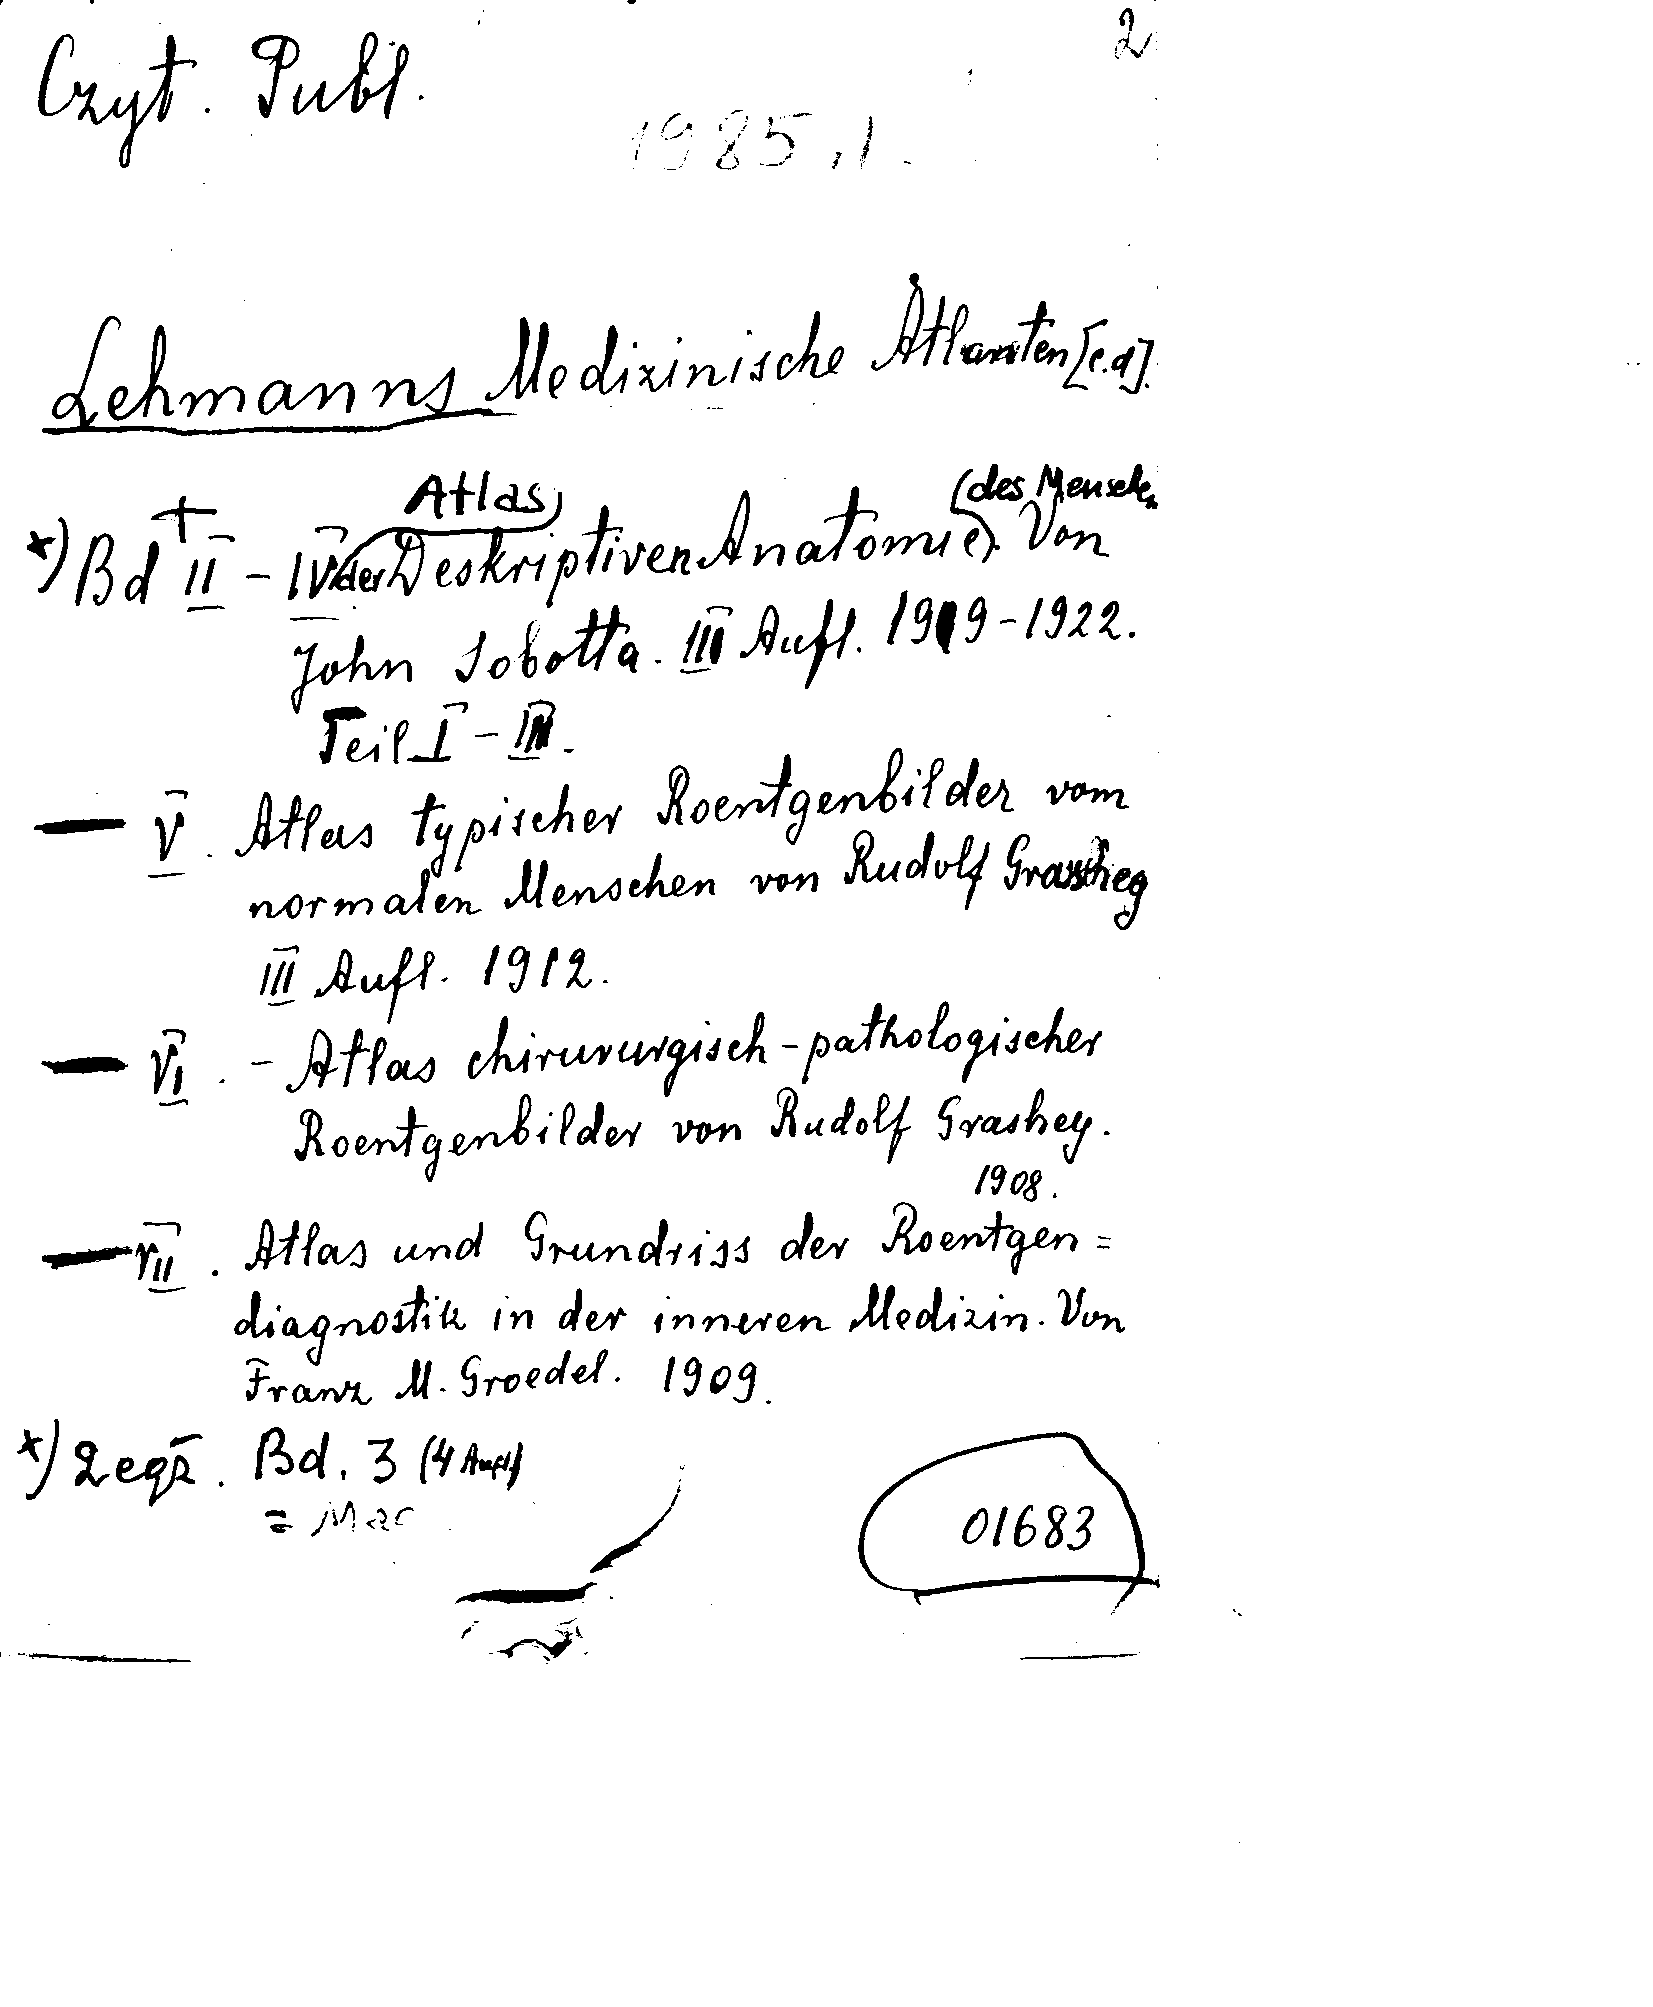 2
Czyt. Publ.
1985.1.
Lehmanns Medizinische Atlanten [c.d].
Atlas (des Mensche.
x) Bd II - IV der Deskriptiven Anatomie). Von
John Sobotta. III Aufl. 1919-1922.
Teil I - III.
— V. Atlas typischer Roentgenbilder vom
normalen Menschen von Rudolf Grashey
III Aufl. 1912.
— VI. - Atlas chirururgisch-pathologischer
Roentgenbilder von Rudolf Grashey.
1908.
— VII. Atlas und Grundriss der Roentgen=
diagnostik in der inneren Medizin. Von
Franz M. Groedel. 1909.
x) 2 egz. Bd. 3 (4 Aufl)
01683